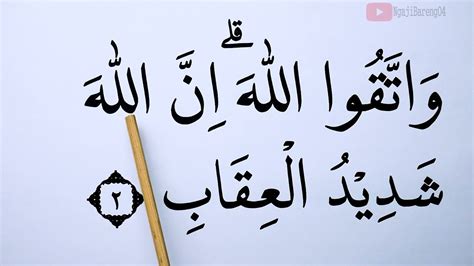 NgajiBareng04
وَاتَّقُوا اللّٰهَ ۗ اِنَّ اللّٰهَ
شَدِيْدُ الْعِقَابِ ٢